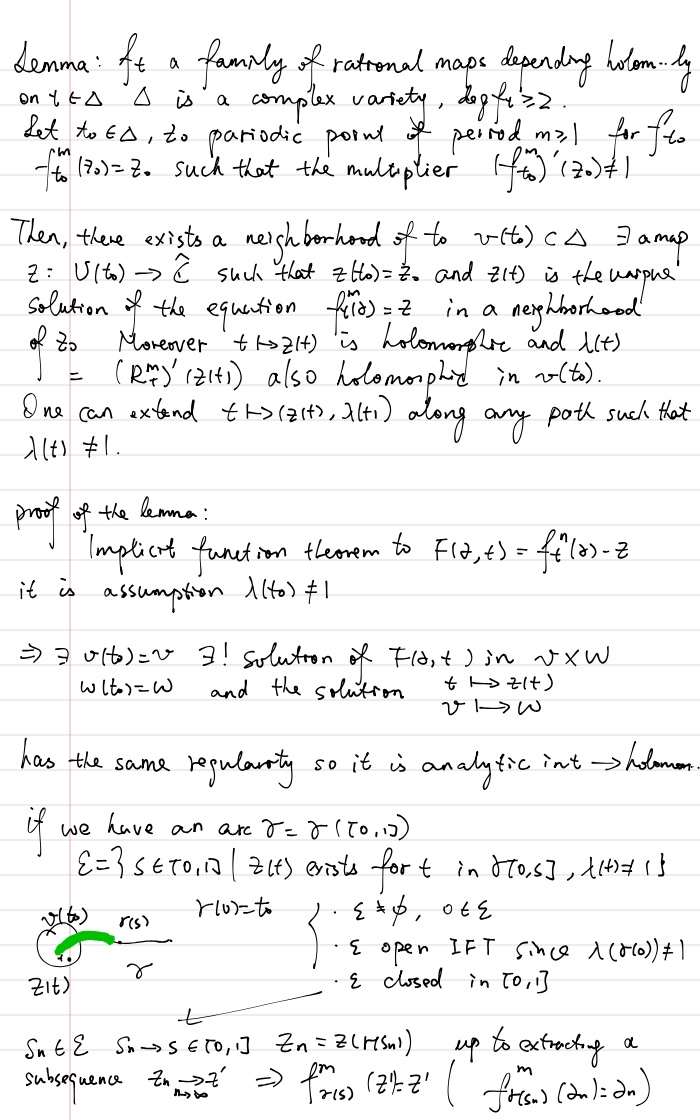 Lemma: f_t a family of rational maps depending holom..ly
on t ∈ Δ Δ is a complex variety, deg f_t ≥ 2.
Let t_0 ∈ Δ, z_0 periodic point of period m ≥ 1 for f_{t_0}
f_{t_0}^m (z_0) = z_0 such that the multiplier (f_{t_0}^m)' (z_0) ≠ 1
Then, there exists a neighborhood of t_0 U(t_0) ⊂ Δ ∃ a map
z: U(t_0) → Ĉ such that z(t_0) = z_0 and z(t) is the unique
solution of the equation f_t^m(z) = z in a neighborhood
of z_0 Moreover t ↦ z(t) is holomorphic and λ(t)
= (R_t^m)' (z(t)) also holomorphic in U(t_0).
One can extend t ↦ (z(t), λ(t)) along any path such that
λ(t) ≠ 1.
proof of the lemma:
Implicit function theorem to F(z,t) = f_t^n(z) - z
it is assumption λ(t_0) ≠ 1
⇒ ∃ U(t_0) = U ∃! solution of F(z,t) in U × W
W(t_0) = W and the solution t ↦ z(t)
U ↦ W
has the same regularity so it is analytic in t → holomor.
if we have an arc γ = γ([0,1])
ℰ = { s ∈ [0,1] | z(t) exists for t in γ[0,s], λ(t) ≠ 1 }
U(t_0) γ(s) γ(0) = t_0 · ℰ ≠ ∅, 0 ∈ ℰ
γ · ℰ open IFT since λ(γ(0)) ≠ 1
z(t) · ℰ closed in [0,1]
s_n ∈ ℰ s_n → s ∈ [0,1] z_n = z(γ(s_n)) up to extracting a
subsequence z_n →_{n→∞} z' ⇒ f_{γ(s)}^m (z') = z' ( f_{γ(s_n)}^m (z_n) = z_n )